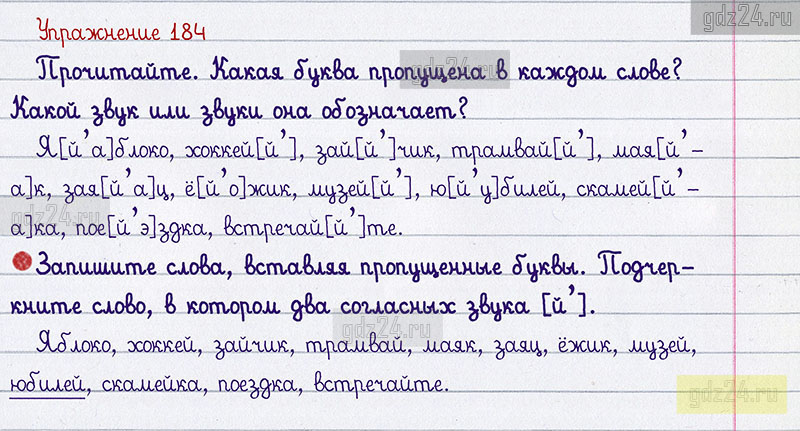 gdz24.ru
Упражнение 184
Прочитайте. Какая буква пропущена в каждом слове?
gdz24.ru
Какой звук или звуки она обозначает?
Я[й'а]блоко, хоккей[й'], зай[й']чик, трамвай[й'], мая[й'-
а]к, зая[й'а]ц, ё[й'о]жик, музей[й'], ю[й'у]билей, скамей[й'-
gdz24.ru
а]ка, пое[й'э]здка, встречай[й']те.
Запишите слова, вставляя пропущенные буквы. Подчер-
кните слово, в котором два согласных звука [й'].
gdz24.ru
Яблоко, хоккей, зайчик, трамвай, маяк, заяц, ёжик, музей,
юбилей, скамейка, поездка, встречайте.
gdz24.ru